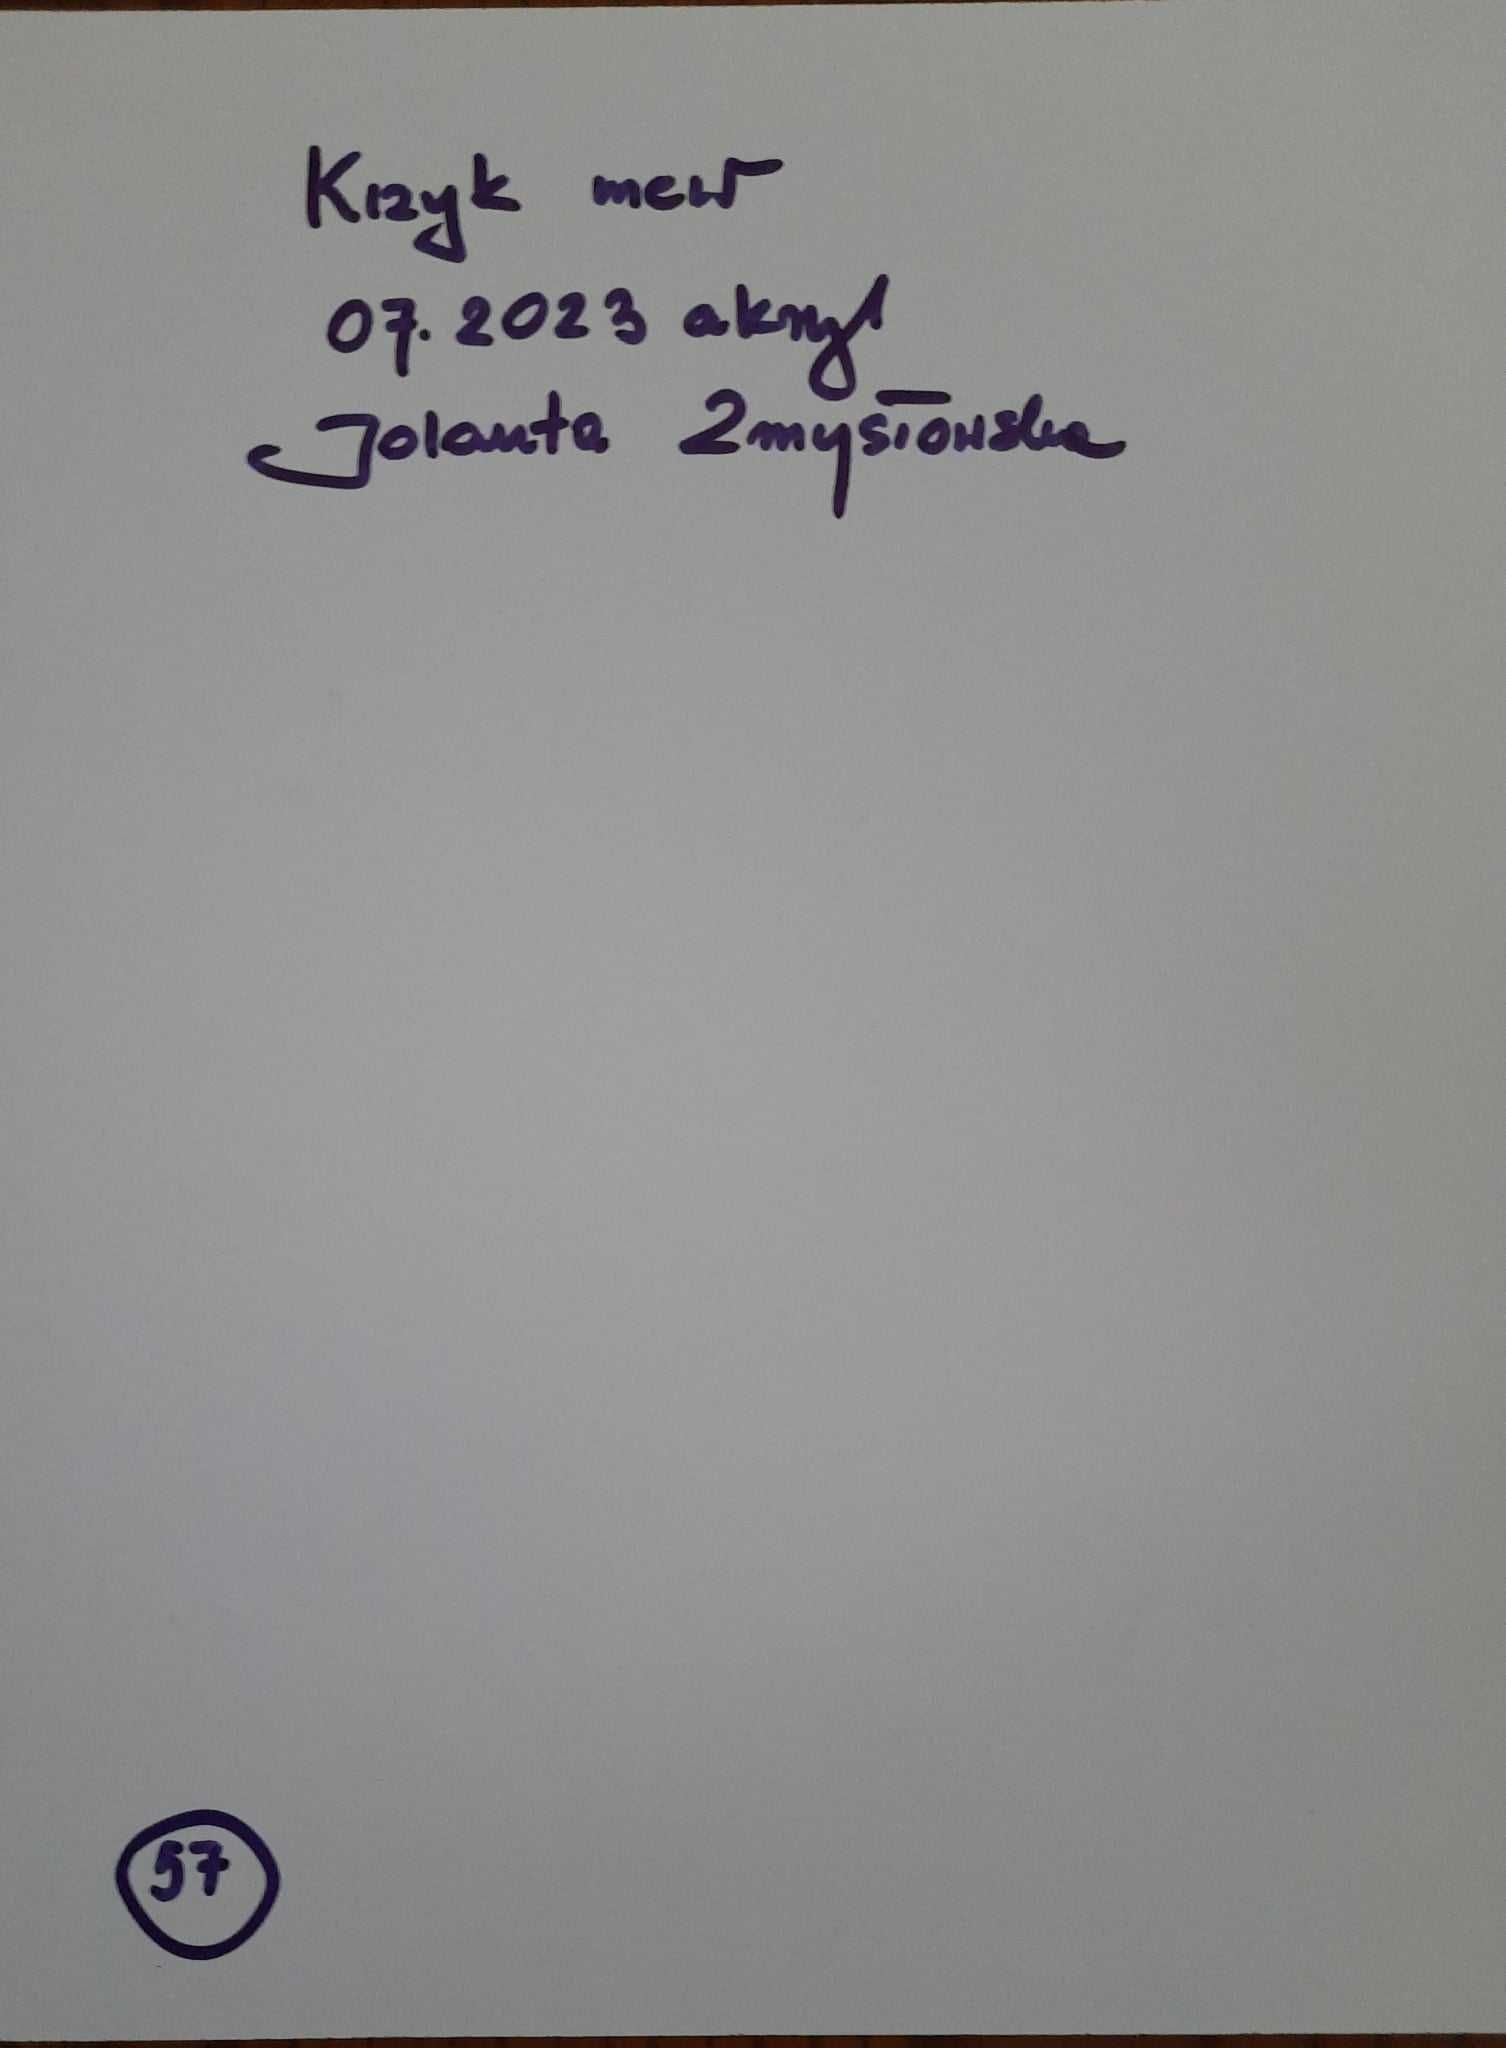 Krzyk mew
07.2023 akryl
Jolanta Zmysłowska
57